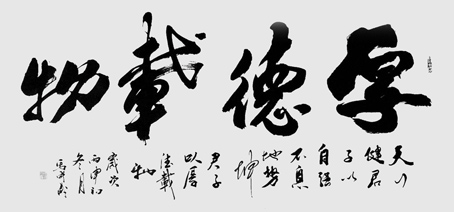 厚德載物
天行
健君
子以
自强
不息
地勢
坤
君子
以厚
德載
物
歲次
丙申初
冬月